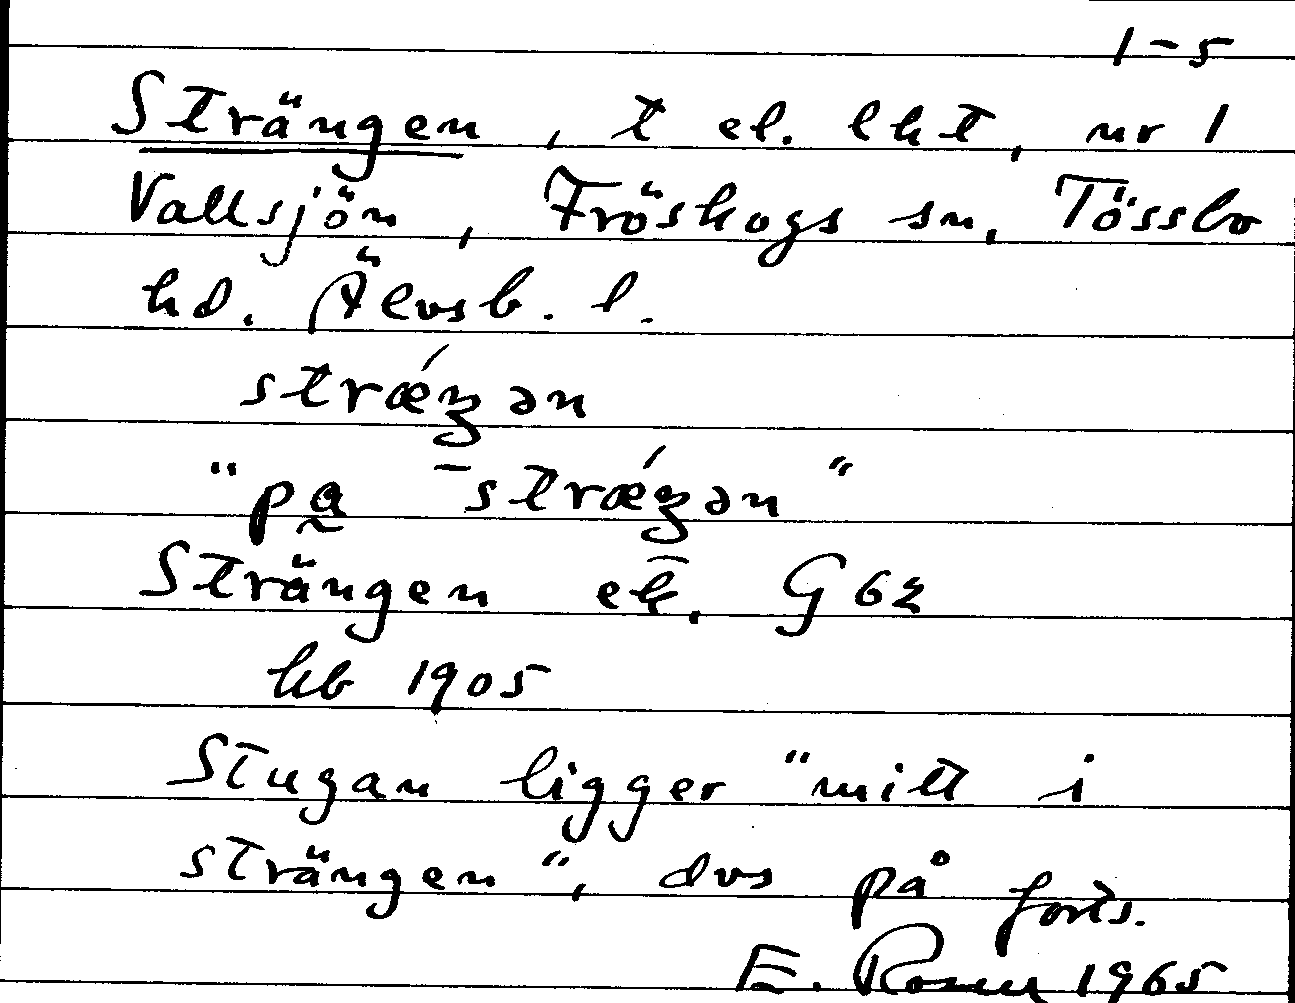 1-5
Strängen, t el. lht, nr 1
Vallsjön, Fröskogs sn, Tössbo
hd. Älvsb. l.
stræ´ŋən
"pa ‾stræ´ŋən"
Strängen ek. G 62
kb 1905
Stugan ligger "mitt i
strängen", dvs på forts.
E. 1965